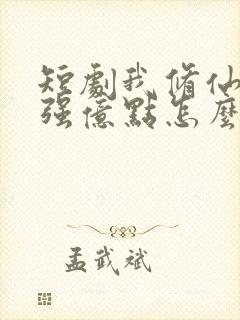 短劇我修仙
强億點怎麼
孟武斌